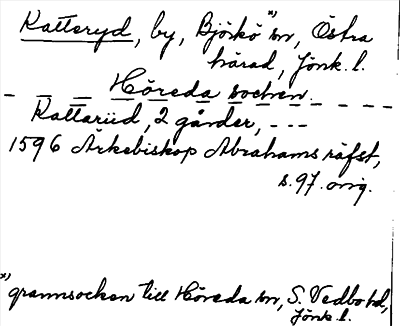 Katteryd, by, Björkö *) sn, Östra
härad, Jönk. l.
Höreda socken
Kattariid, 2 gårder, ---
1596 Ärkebiskop Abrahams räfst,
s. 97. orig.
*) grannsocken till Höreda sn, S. Vedbo hd,
Jönk. l.